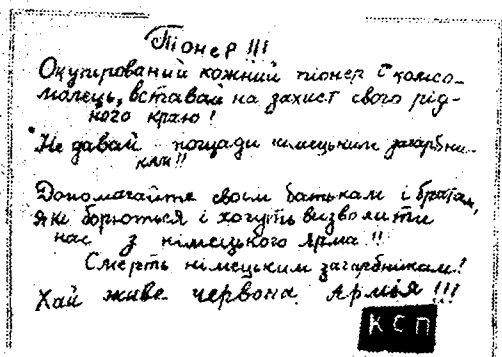 Піонер!!!
Окупірований кожний піонер і комсо-
молець, вставай на захист свого рід-
ного краю!
Не давай пощади німецьким загарбни-
кам!!
Допомагайте своїм батькам і братам,
які борються і хочуть визволити
нас з німецького ярма!!
Смерть німецьким загарбникам!
Хай живе червона Армія!!!
КСП